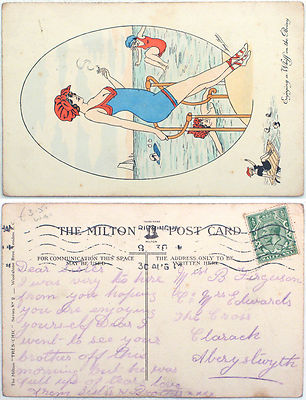 Enjoying a Whiff on the Briny
THE MILTON POST CARD
FOR COMMUNICATION THIS SPACE
MAY BE USED
THE ADDRESS ONLY TO BE
WRITTEN HERE
Dear Sister
I was very to here
from you hoping
you are enjoying
yourself Dear I
went to see your
brother off this
morning but he was
full up of tear love
from
Miss B Ferguson
c/o Mrs Edwards
The Cross
Clarach
Aberystwyth
The Milton "TRES-CHIC" Series No